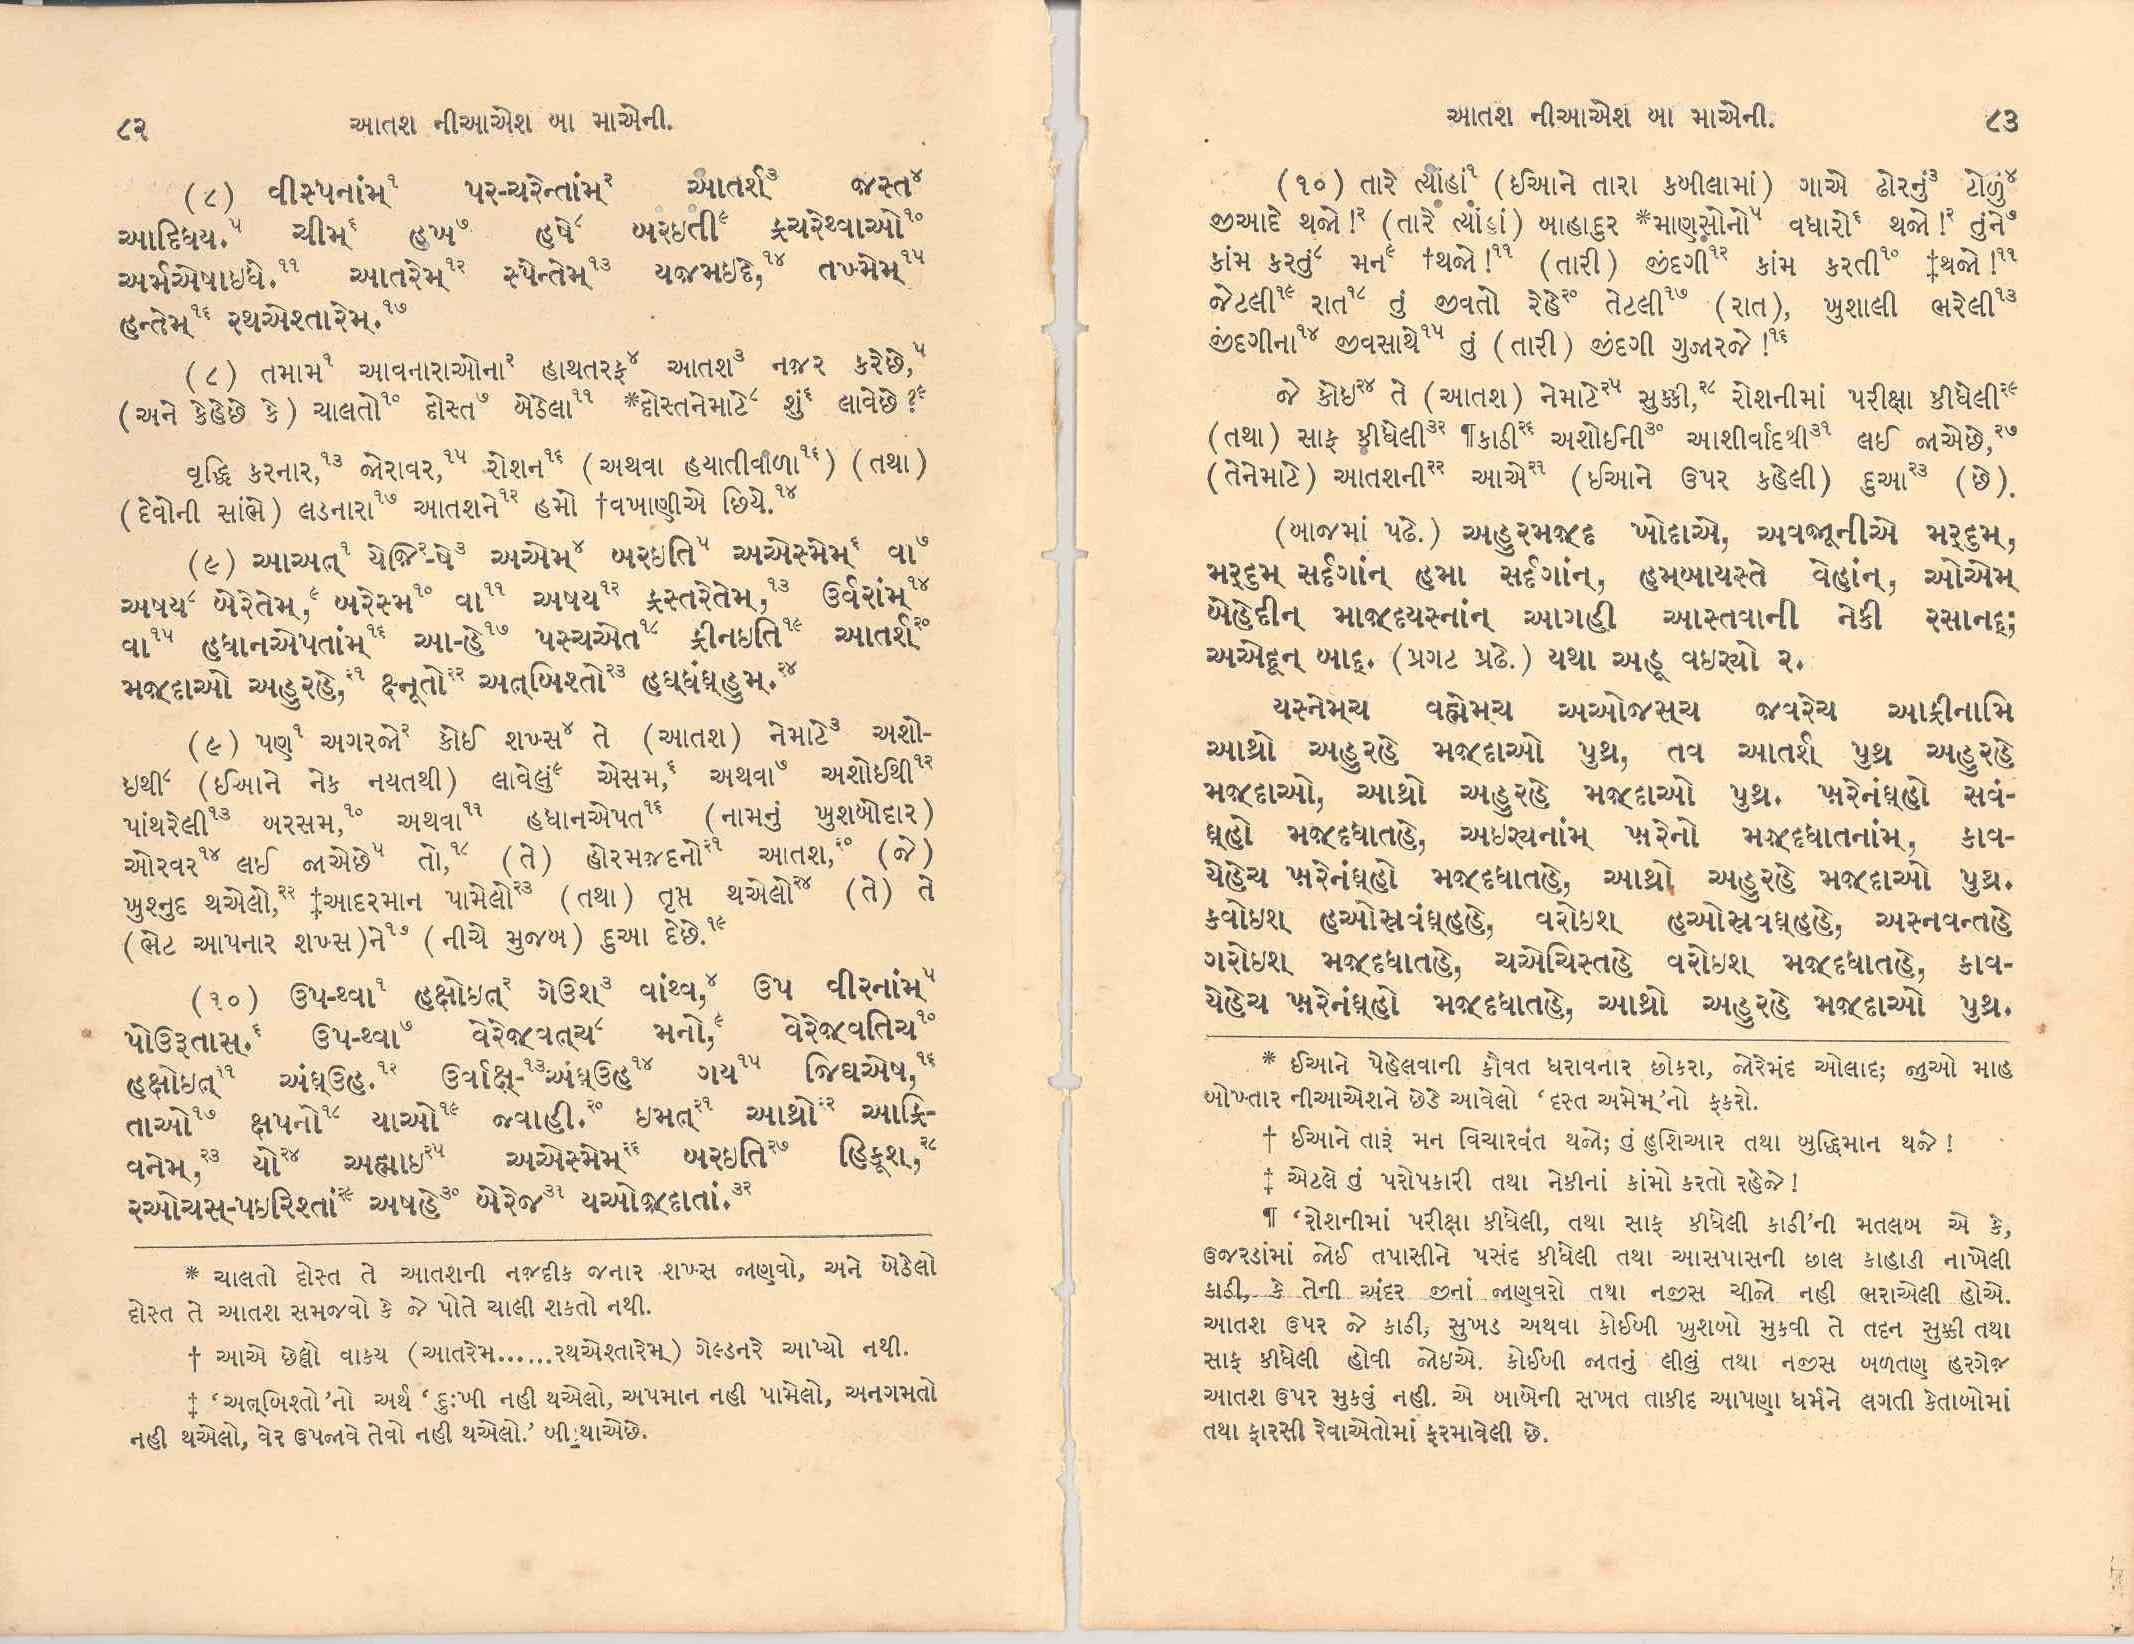 ૮૨ આતશ નીઆએશ બા માએની.
(૮) વીસ્પનાંમ્૧ પર-ચરેન્તાંમ્૨ આતર્શ્૩ જસ્ત૪
આદિધય.૫ ચીમ્૬ હખ૭ હષે૮ બરઇતી૯ ફ્રચરેથ્વાઓ૧૦
અર્મએષાઇધે.૧૧ આતરેમ્૧૨ સ્પેન્તેમ્૧૩ યજમઇદે,૧૪ તખ્મેમ્૧૫
હન્તેમ્૧૬ રથએશ્તારેમ્.૧૭
(૮) તમામ૧ આવનારાઓના૨ હાથતરફ૪ આતશ૩ નજર કરેછે,૫
(અને કેહેછે કે) ચાલતો૧૦ દોસ્ત૭ બેઠેલા૧૧ *દોસ્તનેમાટે૮ શું૬ લાવેછે?૯
વૃદ્ધિ કરનાર,૧૩ જોરાવર,૧૫ રોશન૧૬ (અથવા હયાતીવાળા૧૬) (તથા)
(દેવોની સાંભે) લડનારા૧૭ આતશને૧૨ હમો †વખાણીએ છિયે.૧૪
(૯) આઅત્૧ યેજિ૨-ષે૩ અએમ્૪ બરઇતિ૫ અએસ્મેમ્૬ વા૭
અષય૮ બેરેતેમ્,૯ બરેસ્મ૧૦ વા૧૧ અષય૧૨ ફ્રસ્તરેતેમ્,૧૩ ઉર્વરાંમ્૧૪
વા૧૫ હધાનએપતાંમ્૧૬ આ-હે૧૭ પસ્ચએત૧૮ ફ્રીનઇતિ૧૯ આતર્શ્૨૦
મજ્દાઓ અહુરહે,૨૧ ક્ષ્નૂતો૨૨ અત્બિશ્તો૨૩ હઘ્ધંઘ્હુમ્.૨૪
(૯) પણ૧ અગરજો૨ કોઈ શખ્સ૪ તે (આતશ) નેમાટે૩ અશો-
ઇથી૮ (ઈઆને નેક નયતથી) લાવેલું૯ એસમ,૬ અથવા૭ અશોઇથી૧૨
પાંથરેલી૧૩ બરસમ,૧૦ અથવા૧૧ હધાનએપત૧૬ (નામનું ખુશબોદાર)
ઓરવર૧૪ લઈ જાએછે૫ તો,૧૮ (તે) હોરમજદનો૨૧ આતશ,૨૦ (જે)
ખુશ્નુદ થએલો,૨૨ ‡આદરમાન પામેલો૨૩ (તથા) તૃપ્ત થએલો૨૪ (તે) તે
(ભેટ આપનાર શખ્સ)ને૧૭ (નીચે મુજબ) દુઆ દેછે.૧૯
(૧૦) ઉપ-થ્વા૧ હક્ષોઇત્૨ ગેઉશ્૩ વાંથ્વ,૪ ઉપ વીરનાંમ્૫
પોઉરૂતાસ્.૬ ઉપ-થ્વા૭ વેરેજ્વત્ચ૮ મનો,૯ વેરેજ્વતિચ૧૦
હક્ષોઇત્૧૧ અંઘ્ઉહ.૧૨ ઉર્વાક્ષ્-૧૩અંઘ્ઉહ૧૪ ગય૧૫ જિઘએષ,૧૬
તાઓ૧૭ ક્ષપનો૧૮ યાઓ૧૯ જવાહી.૨૦ ઇમત્૨૧ આથ્રો૨૨ આફ્રિ-
વનેમ્,૨૩ યો૨૪ અહ્માઇ૨૫ અએસ્મેમ્૨૬ બરઇતિ૨૭ હિકૂશ્,૨૮
રઓચસ્-પઇરિશ્તાં૨૯ અષહે૩૦ બેરેજ૩૧ યઓજ્દાતાં.૩૨
* ચાલતો દોસ્ત તે આતશની નજદીક જનાર શખ્સ જાણવો, અને બેઠેલો
દોસ્ત તે આતશ સમજવો કે જે પોતે ચાલી શકતો નથી.
† આએ છેલ્લો વાક્ય (આતરેમ......રથએશ્તારેમ્) ગેલ્ડનરે આપ્યો નથી.
‡ ‘અત્બિશ્તો’નો અર્થ ‘દુઃખી નહી થએલો, અપમાન નહી પામેલો, અનગમતો
નહી થએલો, વેર ઉપજાવે તેવો નહી થએલો.’ બી થાએછે.
આતશ નીઆએશ બા માએની. ૮૩
(૧૦) તારે ત્યાંહાં૧ (ઈઆને તારા કબીલામાં) ગાએ ઢોરનું૩ ટોળું૪
જીઆદે થજો!૨ (તારે ત્યાંહાં) બાહાદુર *માણસોનો૫ વધારો૬ થજો!૨ તુંને૭
કાંમ કરતું૮ મન૯ †થજો!૧૧ (તારી) જીંદગી૧૨ કાંમ કરતી૧૦ ‡થજો!૧૧
જેટલી૧૯ રાત૧૮ તું જીવતો રેહે૨૦ તેટલી૧૭ (રાત), ખુશાલી ભરેલી૧૩
જીંદગીના૧૪ જીવસાથે૧૫ તું (તારી) જીંદગી ગુજારજે!૧૬
જે કોઇ૨૪ તે (આતશ) નેમાટે૨૫ સુક્કી,૨૮ રોશનીમાં પરીક્ષા કીધેલી૨૯
(તથા) સાફ કીધેલી૩૨ ¶કાઠી૨૬ અશોઈની૩૦ આશીર્વાદથી૩૧ લઈ જાએછે,૨૭
(તેનેમાટે) આતશની૨૨ આએ૨૧ (ઈઆને ઉપર કહેલી) દુઆ૨૩ (છે).
(બાજમાં પઢે.) અહુરમજ્દ ખોદાએ, અવજૂનીએ મર્દુમ્,
મર્દુમ્ સર્દગાંન્ હમા સર્દગાંન્, હમ્બાયસ્તે વેહાંન્, ઓએમ્
બેહેદીન્ માજ્દયસ્નાંન્ આગહી આસ્તવાની નેકી રસાનદ્;
અએદૂન્ બાદ્. (પ્રગટ પ્રઢે.) યથા અહૂ વઇર્યો ૨.
યસ્નેમ્ચ વહ્મેમ્ચ અઓજસ્ચ જવરેચ આફ્રીનામિ
આથ્રો અહુરહે મજ્દાઓ પુથ્ર, તવ આતર્શ્ પુથ્ર અહુરહે
મજ્દાઓ, આથ્રો અહુરહે મજ્દાઓ પુથ્ર. ખ઼રેનંઘ્હો સવં-
ઘ્હો મજ્દધાતહે, અઇર્યનાંમ્ ખ઼રેનો મજ્દધાતનાંમ્, કાવ-
યેહેચ ખ઼રેનંઘ્હો મજ્દધાતહે, આથ્રો અહુરહે મજ્દાઓ પુથ્ર.
કવોઇશ્ હઓસ્રવંઘ્હહે, વરોઇશ્ હઓસ્રવંઘ્હહે, અસ્નવન્તહે
ગરોઇશ્ મજ્દધાતહે, ચએચિસ્તહે વરોઇશ્ મજ્દધાતહે, કાવ-
યેહેચ ખ઼રેનંઘ્હો મજ્દધાતહે, આથ્રો અહુરહે મજ્દાઓ પુથ્ર.
* ઈઆને પેહેલવાની કૌવત ધરાવનાર છોકરા, જોરેમંદ ઓલાદ; જુઓ માહ
બોખ્તાર નીઆએશને છેડે આવેલો ‘દસ્ત અમેમ્’નો ફકરો.
† ઈઆને તારૂં મન વિચારવંત થજો; તું હુશિઆર તથા બુદ્ધિમાન થજે!
‡ એટલે તું પરોપકારી તથા નેકીનાં કાંમો કરતો રહેજે!
¶ ‘રોશનીમાં પરીક્ષા કીધેલી, તથા સાફ કીધેલી કાઠી’ની મતલબ એ કે,
ઉજરડાંમાં જોઈ તપાસીને પસંદ કીધેલી તથા આસપાસની છાલ કાહાડી નાખેલી
કાઠી, કે તેની અંદર જીનાં જાણવરો તથા નજીસ ચીજો નહી ભરાએલી હોએ.
આતશ ઉપર જે કાઠી, સુખડ અથવા કોઈબી ખુશબો મુકવી તે તદન સુક્કી તથા
સાફ કીધેલી હોવી જોઇએ. કોઈબી જાતનું લીલું તથા નજીસ બળતણ હરગેજ
આતશ ઉપર મુકવું નહી. એ બાબેની સખત તાકીદ આપણા ધર્મને લગતી કેતાબોમાં
તથા ફારસી રેવાએતોમાં ફરમાવેલી છે.